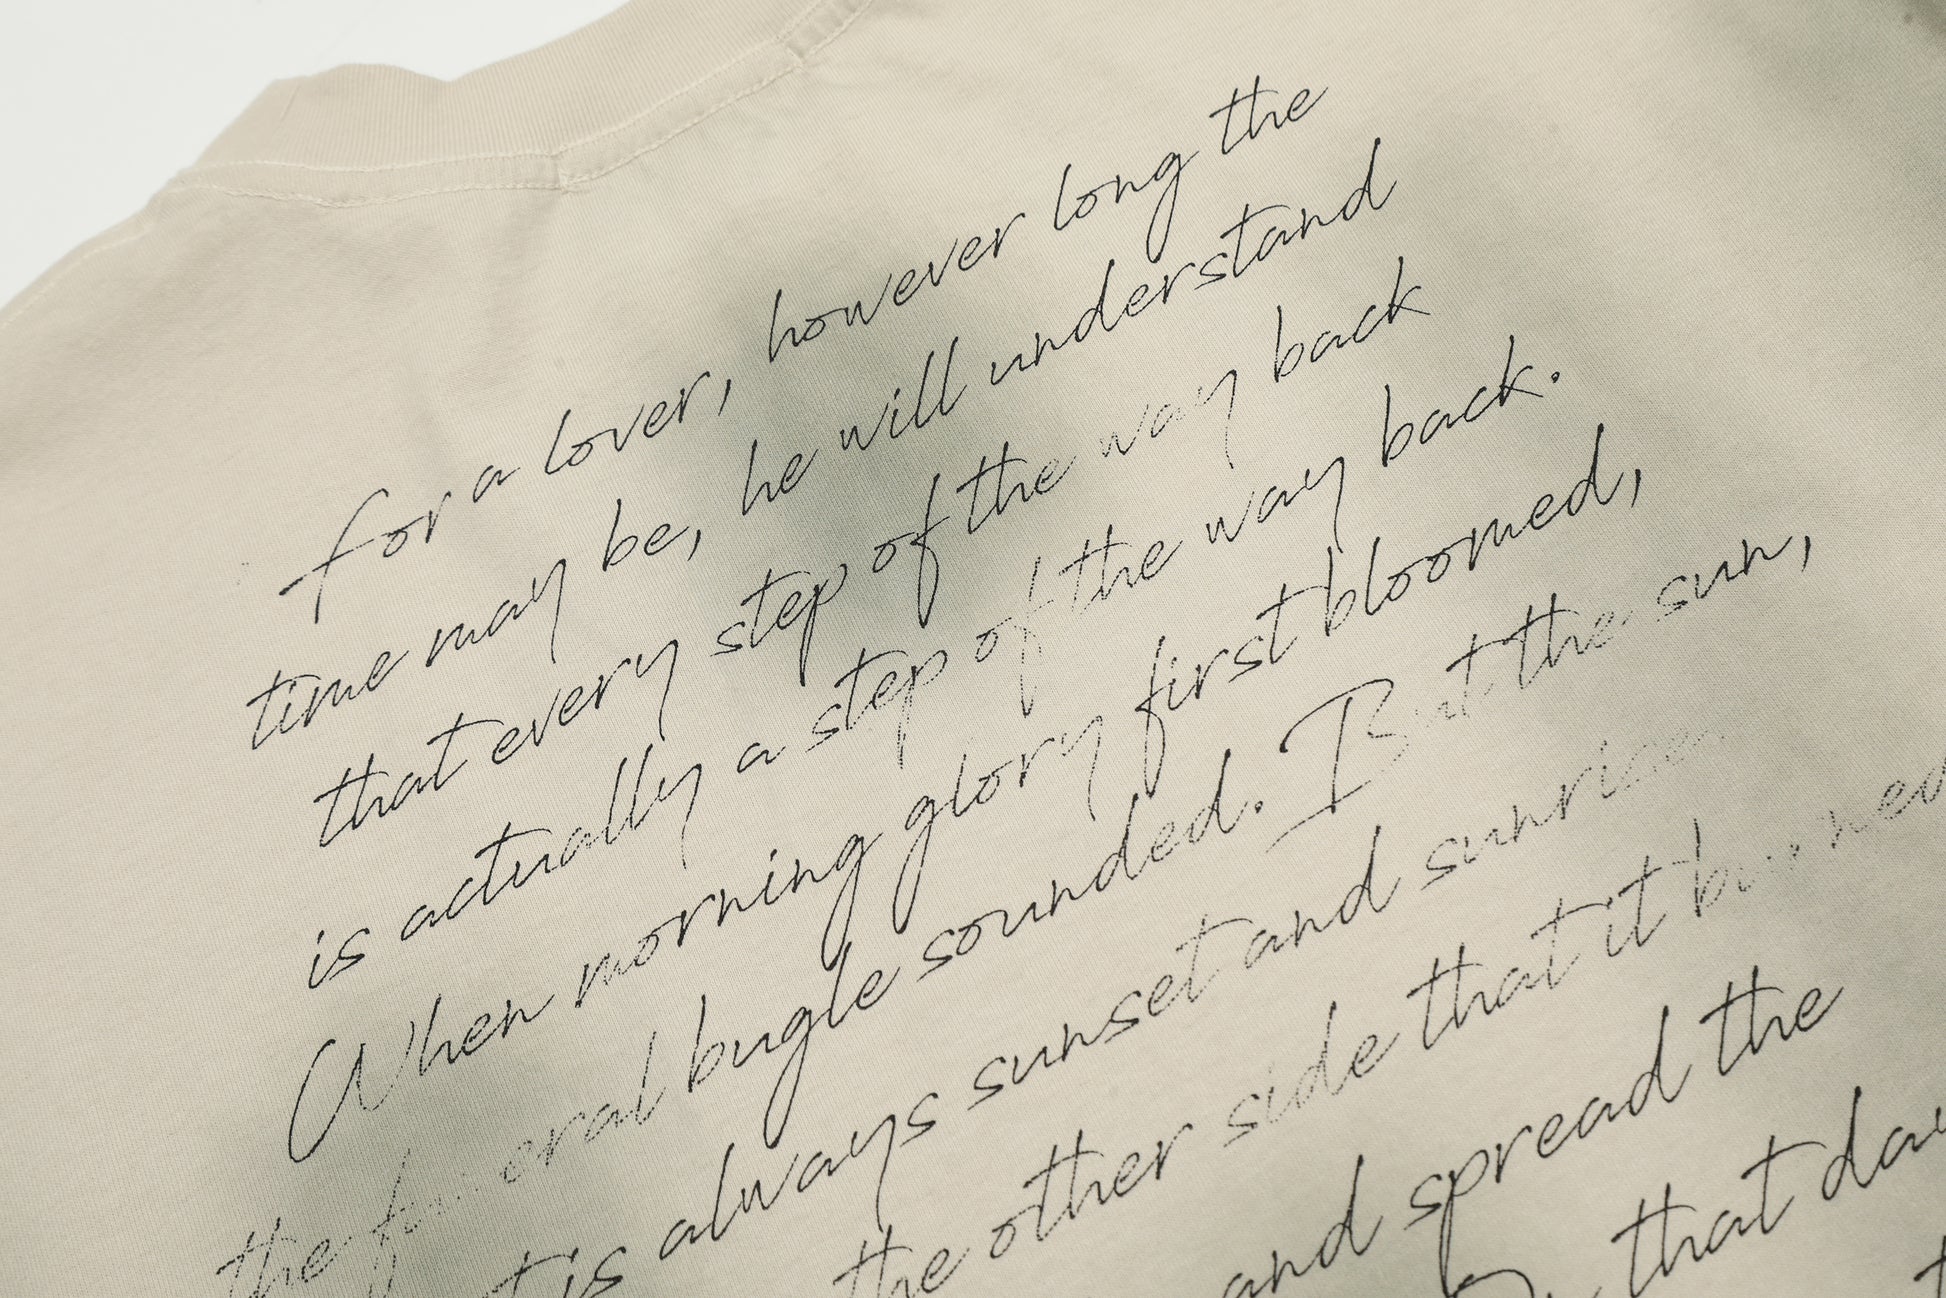 for a lover, however long the
time may be, he will understand
that every step of the way back
is actually a step of the way back.
When morning glory first bloomed,
the funeral bugle sounded. But the sun,
is always sunset and sunrise
the other side that it burned
and spread the
that